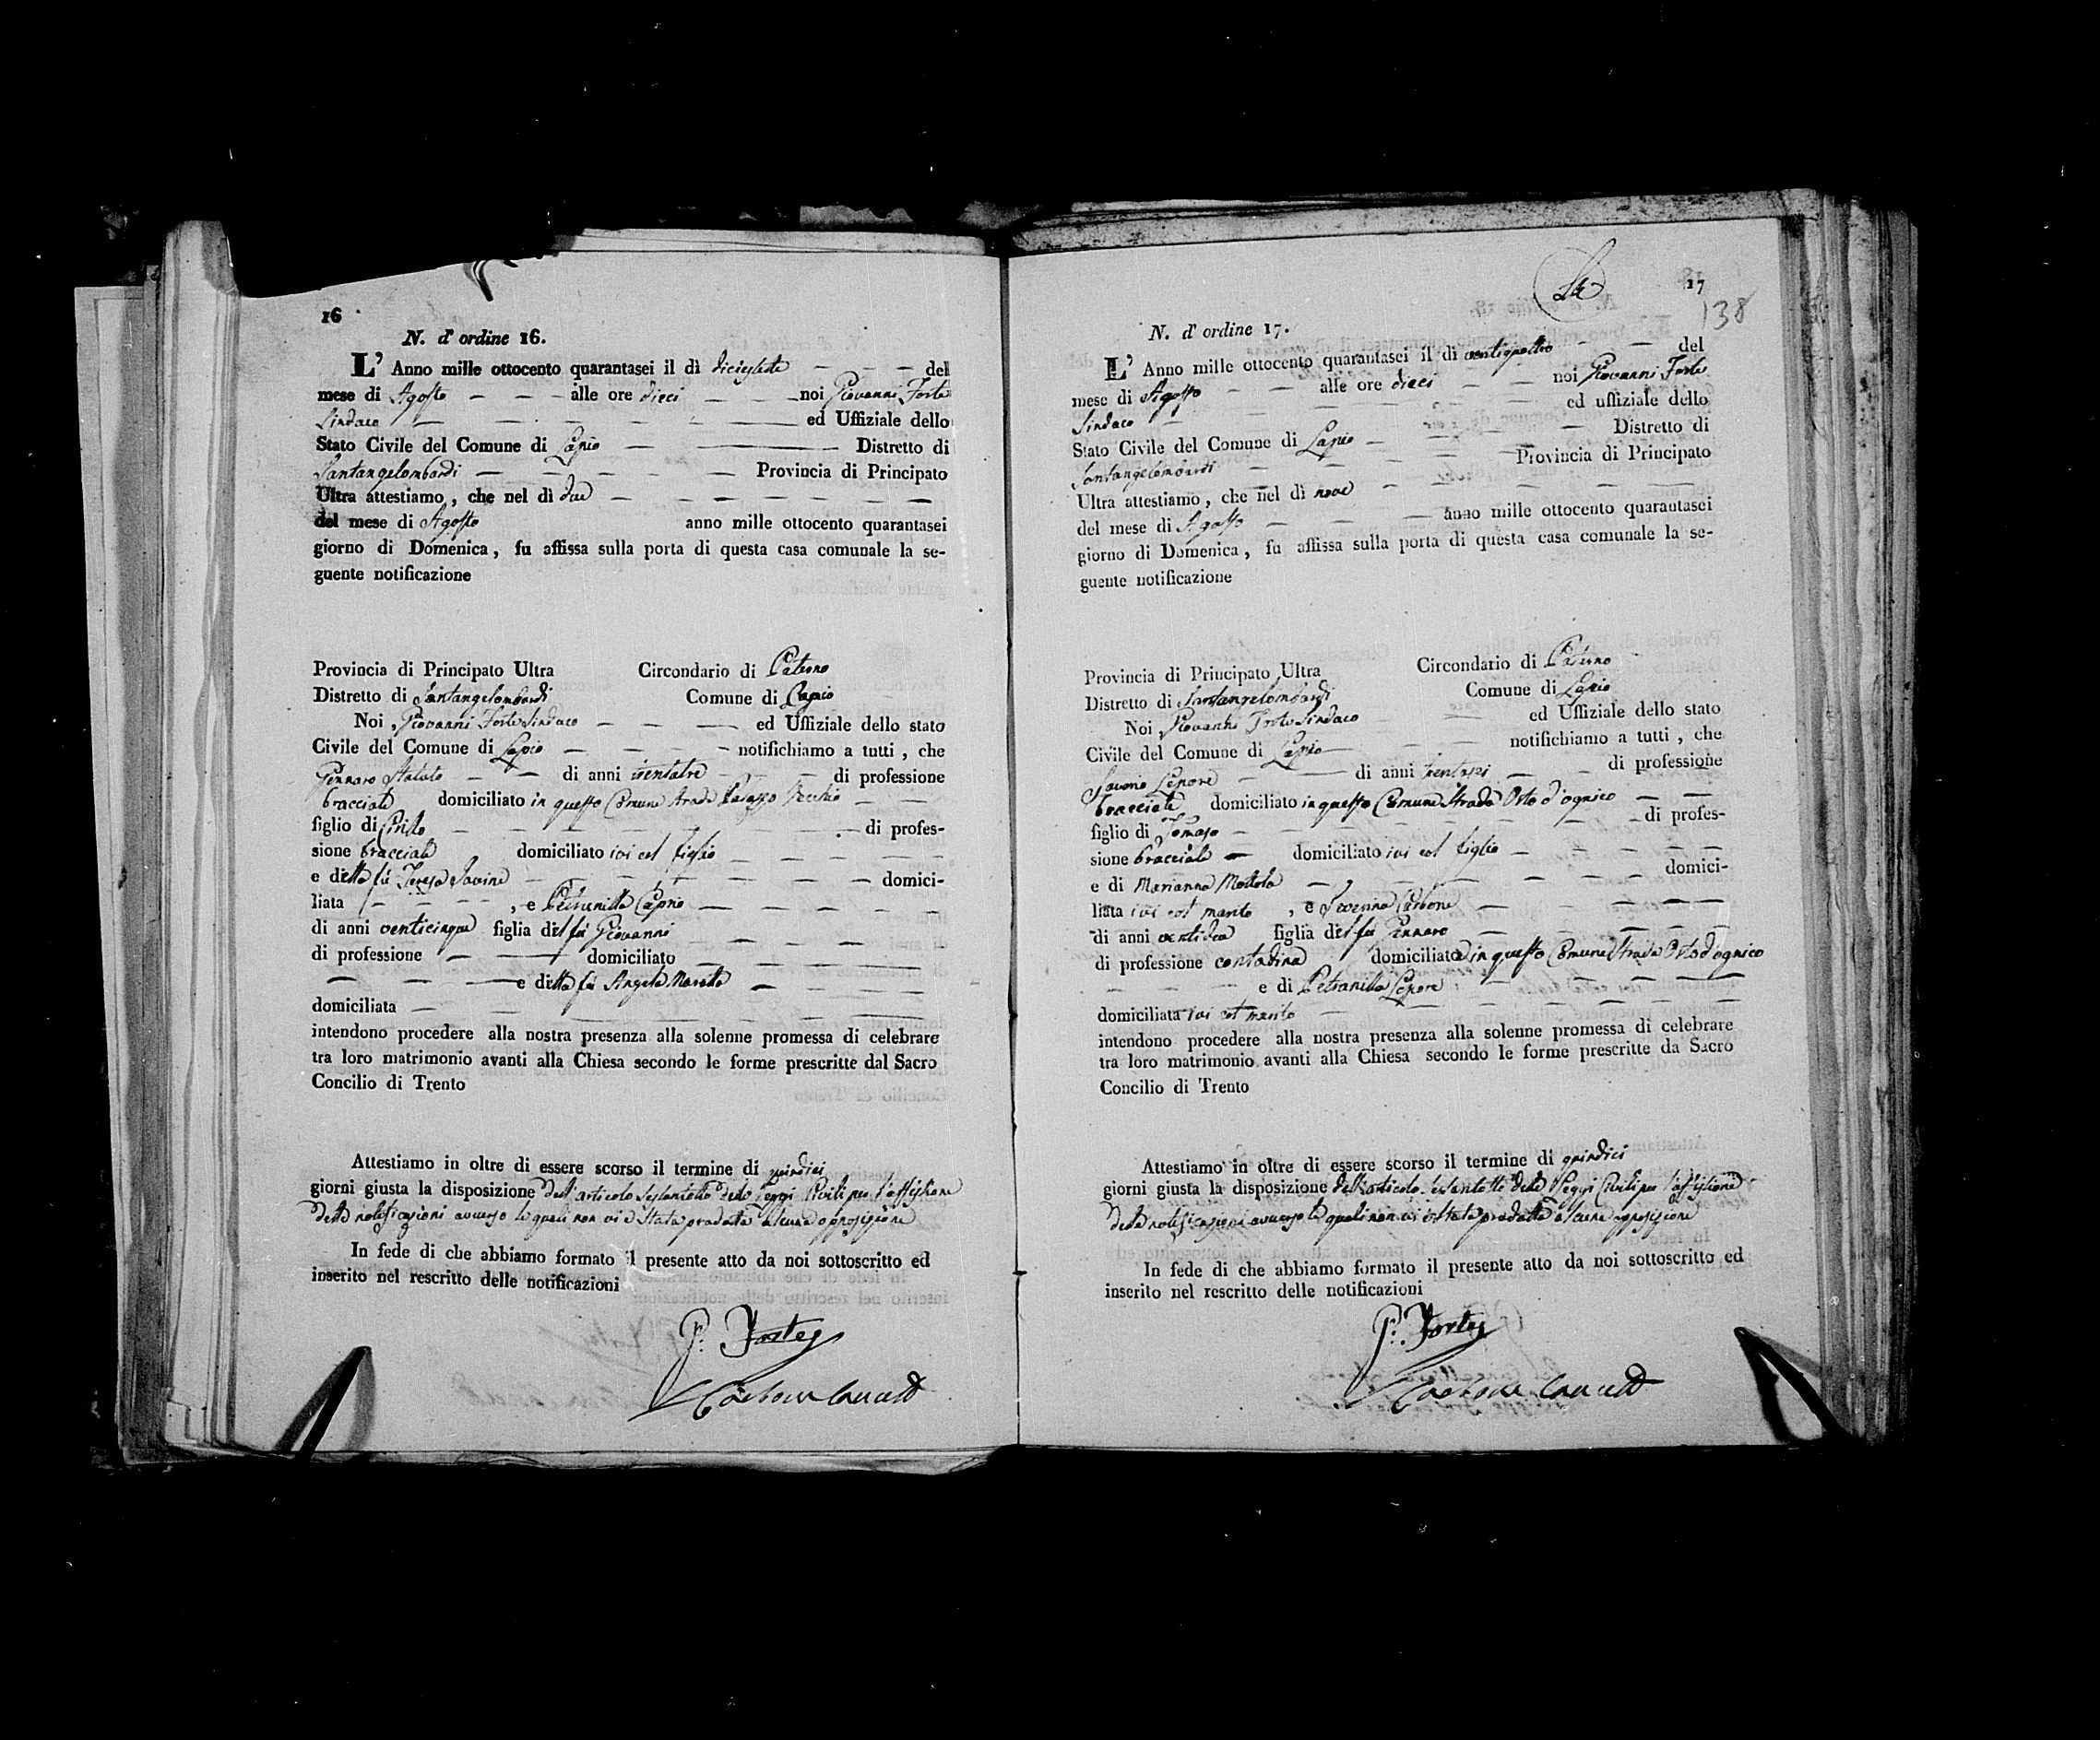 16
N. d'ordine 16.
L' Anno mille ottocento quarantasei il dì diciesette del
mese di Agosto alle ore dieci noi Giovanni Forte
Sindaco ed Uffiziale dello
Stato Civile del Comune di Lapio Distretto di
Santangelombardi Provincia di Principato
Ultra attestiamo, che nel dì due
del mese di Agosto anno mille ottocento quarantasei
giorno di Domenica, fu affissa sulla porta di questa casa comunale la se-
guente notificazione
Provincia di Principato Ultra Circondario di Paterno
Distretto di Santangelombardi Comune di Lapio
Noi Giovanni Forte Sindaco ed Uffiziale dello stato
Civile del Comune di Lapio notifichiamo a tutti, che
Gennaro Statuto di anni trentatre di professione
bracciale domiciliato in questo Comune Strada Palazzo Vecchio
figlio di di profes-
sione bracciale domiciliato ivi col figlio
e della fù Teresa Savino domici-
liata , e Petrunilla Caprio
di anni venticinque figlia del fù Giovanni
di professione domiciliato
e della fù Angela
domiciliata
intendono procedere alla nostra presenza alla solenne promessa di celebrare
tra loro matrimonio avanti alla Chiesa secondo le forme prescritte dal Sacro
Concilio di Trento
Attestiamo in oltre di essere scorso il termine di quindici
giorni giusta la disposizione dell'articolo sessantotto delle Leggi Civili per l'affissione
delle notificazioni avverso le quali non vi è stata prodotta alcuna opposizione
In fede di che abbiamo formato il presente atto da noi sottoscritto ed
inserito nel rescritto delle notificazioni
G. Forte
17
138
N. d'ordine 17.
L' Anno mille ottocento quarantasei il dì ventiquattro del
mese di Agosto alle ore dieci noi Giovanni Forte
Sindaco ed uffiziale dello
Stato Civile del Comune di Lapio Distretto di
Santangelombardi Provincia di Principato
Ultra attestiamo, che nel dì nove
del mese di Agosto anno mille ottocento quarantasei
giorno di Domenica, fu affissa sulla porta di questa casa comunale la se-
guente notificazione
Provincia di Principato Ultra Circondario di Paterno
Distretto di Santangelombardi Comune di Lapio
Noi Giovanni Forte Sindaco ed Uffiziale dello stato
Civile del Comune di Lapio notifichiamo a tutti, che
Saverio Lepore di anni trentasei di professione
bracciale domiciliato in questo Comune Strada Orto d'ognico
figlio di Tomaso di profes-
sione bracciale domiciliato ivi col figlio
e di Marianna Mottola domici-
liata ivi col marito , e Severina Carbone
di anni ventidue figlia del fù Gennaro
di professione contadina domiciliata in questo Comune Strada Orto d'ognico
e di Petranilla Lepore
domiciliata ivi col marito
intendono procedere alla nostra presenza alla solenne promessa di celebrare
tra loro matrimonio avanti alla Chiesa secondo le forme prescritte da Sacro
Concilio di Trento
Attestiamo in oltre di essere scorso il termine di quindici
giorni giusta la disposizione dell'articolo sessantotto delle Leggi Civili per l'affissione
delle notificazioni avverso le quali non vi è stata prodotta alcuna opposizione
In fede di che abbiamo formato il presente atto da noi sottoscritto ed
inserito nel rescritto delle notificazioni
G. Forte